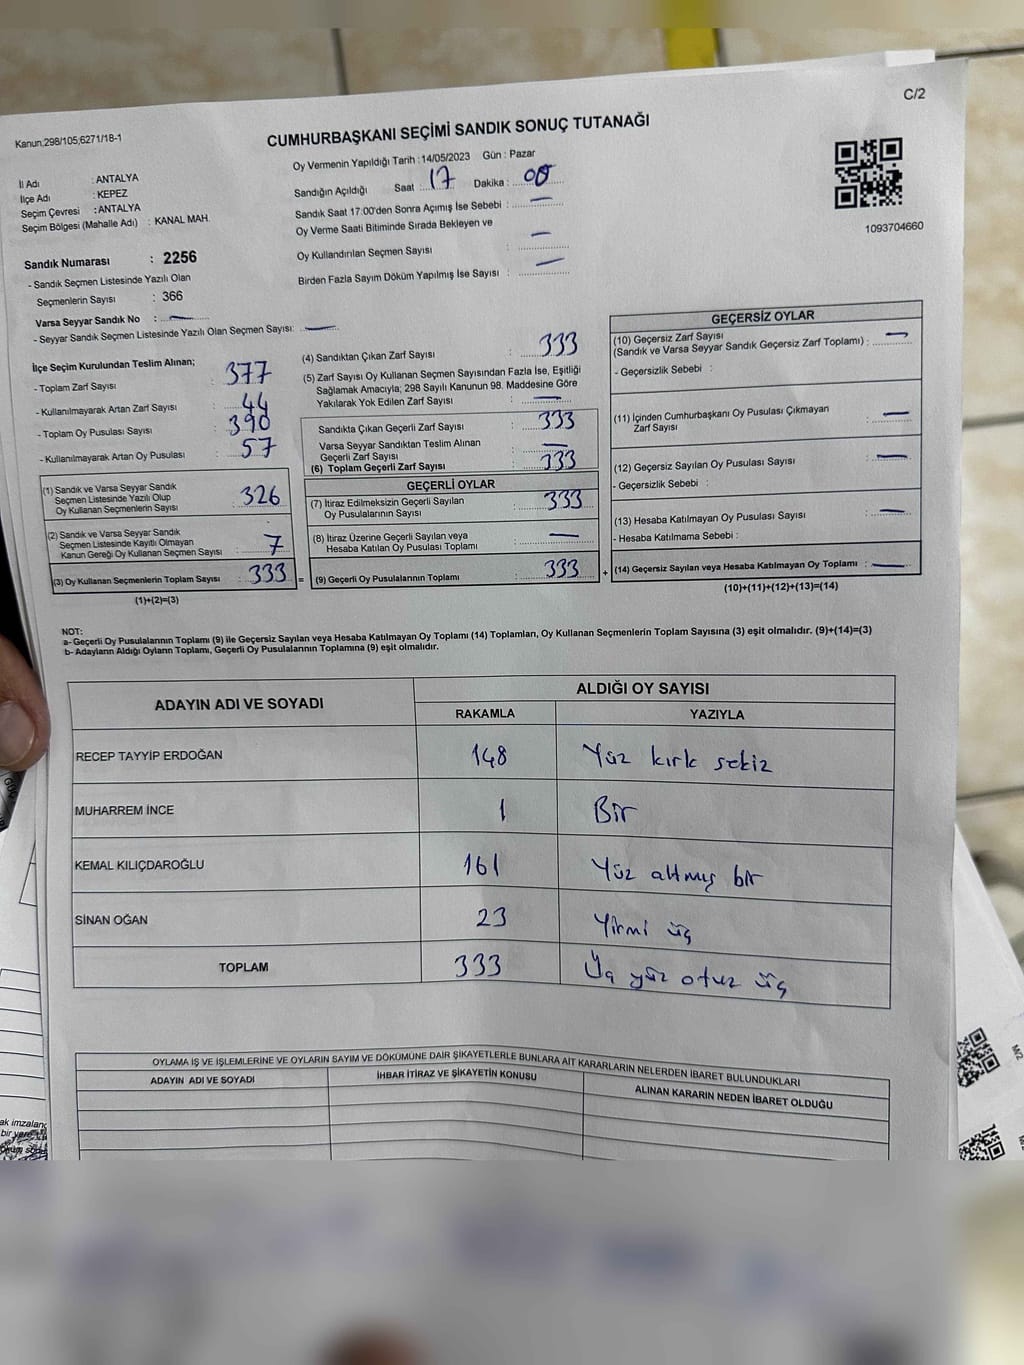 C/2
Kanun;298/105;6271/18-1
CUMHURBAŞKANI SEÇİMİ SANDIK SONUÇ TUTANAĞI
İl Adı : ANTALYA
İlçe Adı : KEPEZ
Seçim Çevresi : ANTALYA
Seçim Bölgesi (Mahalle Adı) : KANAL MAH.
Sandık Numarası : 2256
- Sandık Seçmen Listesinde Yazılı Olan
Seçmenlerin Sayısı : 366
Varsa Seyyar Sandık No : —
- Seyyar Sandık Seçmen Listesinde Yazılı Olan Seçmen Sayısı: —
Oy Vermenin Yapıldığı Tarih : 14/05/2023 Gün : Pazar
Sandığın Açıldığı Saat : 17 Dakika : 00
Sandık Saat 17:00'den Sonra Açımış İse Sebebi : —
Oy Verme Saati Bitiminde Sırada Bekleyen ve
Oy Kullandırılan Seçmen Sayısı : —
Birden Fazla Sayım Döküm Yapılmış İse Sayısı : —
1093704660
İlçe Seçim Kurulundan Teslim Alınan;
- Toplam Zarf Sayısı : 377
- Kullanılmayarak Artan Zarf Sayısı : 44
- Toplam Oy Pusulası Sayısı : 390
- Kullanılmayarak Artan Oy Pusulası : 57
(1) Sandık ve Varsa Seyyar Sandık
Seçmen Listesinde Yazılı Olup
Oy Kullanan Seçmenlerin Sayısı : 326
(2) Sandık ve Varsa Seyyar Sandık
Seçmen Listesinde Kayıtlı Olmayan
Kanun Gereği Oy Kullanan Seçmen Sayısı : 7
(3) Oy Kullanan Seçmenlerin Toplam Sayısı : 333 =
(1)+(2)=(3)
(4) Sandıktan Çıkan Zarf Sayısı : 333
(5) Zarf Sayısı Oy Kullanan Seçmen Sayısından Fazla İse, Eşitliği
Sağlamak Amacıyla; 298 Sayılı Kanunun 98. Maddesine Göre
Yakılarak Yok Edilen Zarf Sayısı : —
Sandıkta Çıkan Geçerli Zarf Sayısı : 333
Varsa Seyyar Sandıktan Teslim Alınan
Geçerli Zarf Sayısı : —
(6) Toplam Geçerli Zarf Sayısı : 333
GEÇERLİ OYLAR
(7) İtiraz Edilmeksizin Geçerli Sayılan
Oy Pusulalarının Sayısı : 333
(8) İtiraz Üzerine Geçerli Sayılan veya
Hesaba Katılan Oy Pusulası Toplamı : —
(9) Geçerli Oy Pusulalarının Toplamı : 333 +
GEÇERSİZ OYLAR
(10) Geçersiz Zarf Sayısı
(Sandık ve Varsa Seyyar Sandık Geçersiz Zarf Toplamı) : —
- Geçersizlik Sebebi :
(11) İçinden Cumhurbaşkanı Oy Pusulası Çıkmayan
Zarf Sayısı : —
(12) Geçersiz Sayılan Oy Pusulası Sayısı : —
- Geçersizlik Sebebi :
(13) Hesaba Katılmayan Oy Pusulası Sayısı : —
- Hesaba Katılmama Sebebi :
(14) Geçersiz Sayılan veya Hesaba Katılmayan Oy Toplamı : —
(10)+(11)+(12)+(13)=(14)
NOT:
a- Geçerli Oy Pusulalarının Toplamı (9) ile Geçersiz Sayılan veya Hesaba Katılmayan Oy Toplamı (14) Toplamları, Oy Kullanan Seçmenlerin Toplam Sayısına (3) eşit olmalıdır. (9)+(14)=(3)
b- Adayların Aldığı Oyların Toplamı, Geçerli Oy Pusulalarının Toplamına (9) eşit olmalıdır.
ADAYIN ADI VE SOYADI
ALDIĞI OY SAYISI
RAKAMLA YAZIYLA
RECEP TAYYİP ERDOĞAN 148 Yüz kırk sekiz
MUHARREM İNCE 1 Bir
KEMAL KILIÇDAROĞLU 161 Yüz altmış bir
SİNAN OĞAN 23 Yirmi üç
TOPLAM 333 Üç yüz otuz üç
OYLAMA İŞ VE İŞLEMLERİNE VE OYLARIN SAYIM VE DÖKÜMÜNE DAİR ŞİKAYETLERLE BUNLARA AİT KARARLARIN NELERDEN İBARET BULUNDUKLARI
ADAYIN ADI VE SOYADI İHBAR İTİRAZ VE ŞİKAYETİN KONUSU ALINAN KARARIN NEDEN İBARET OLDUĞU
ak imzalanç
bir yere
M/2